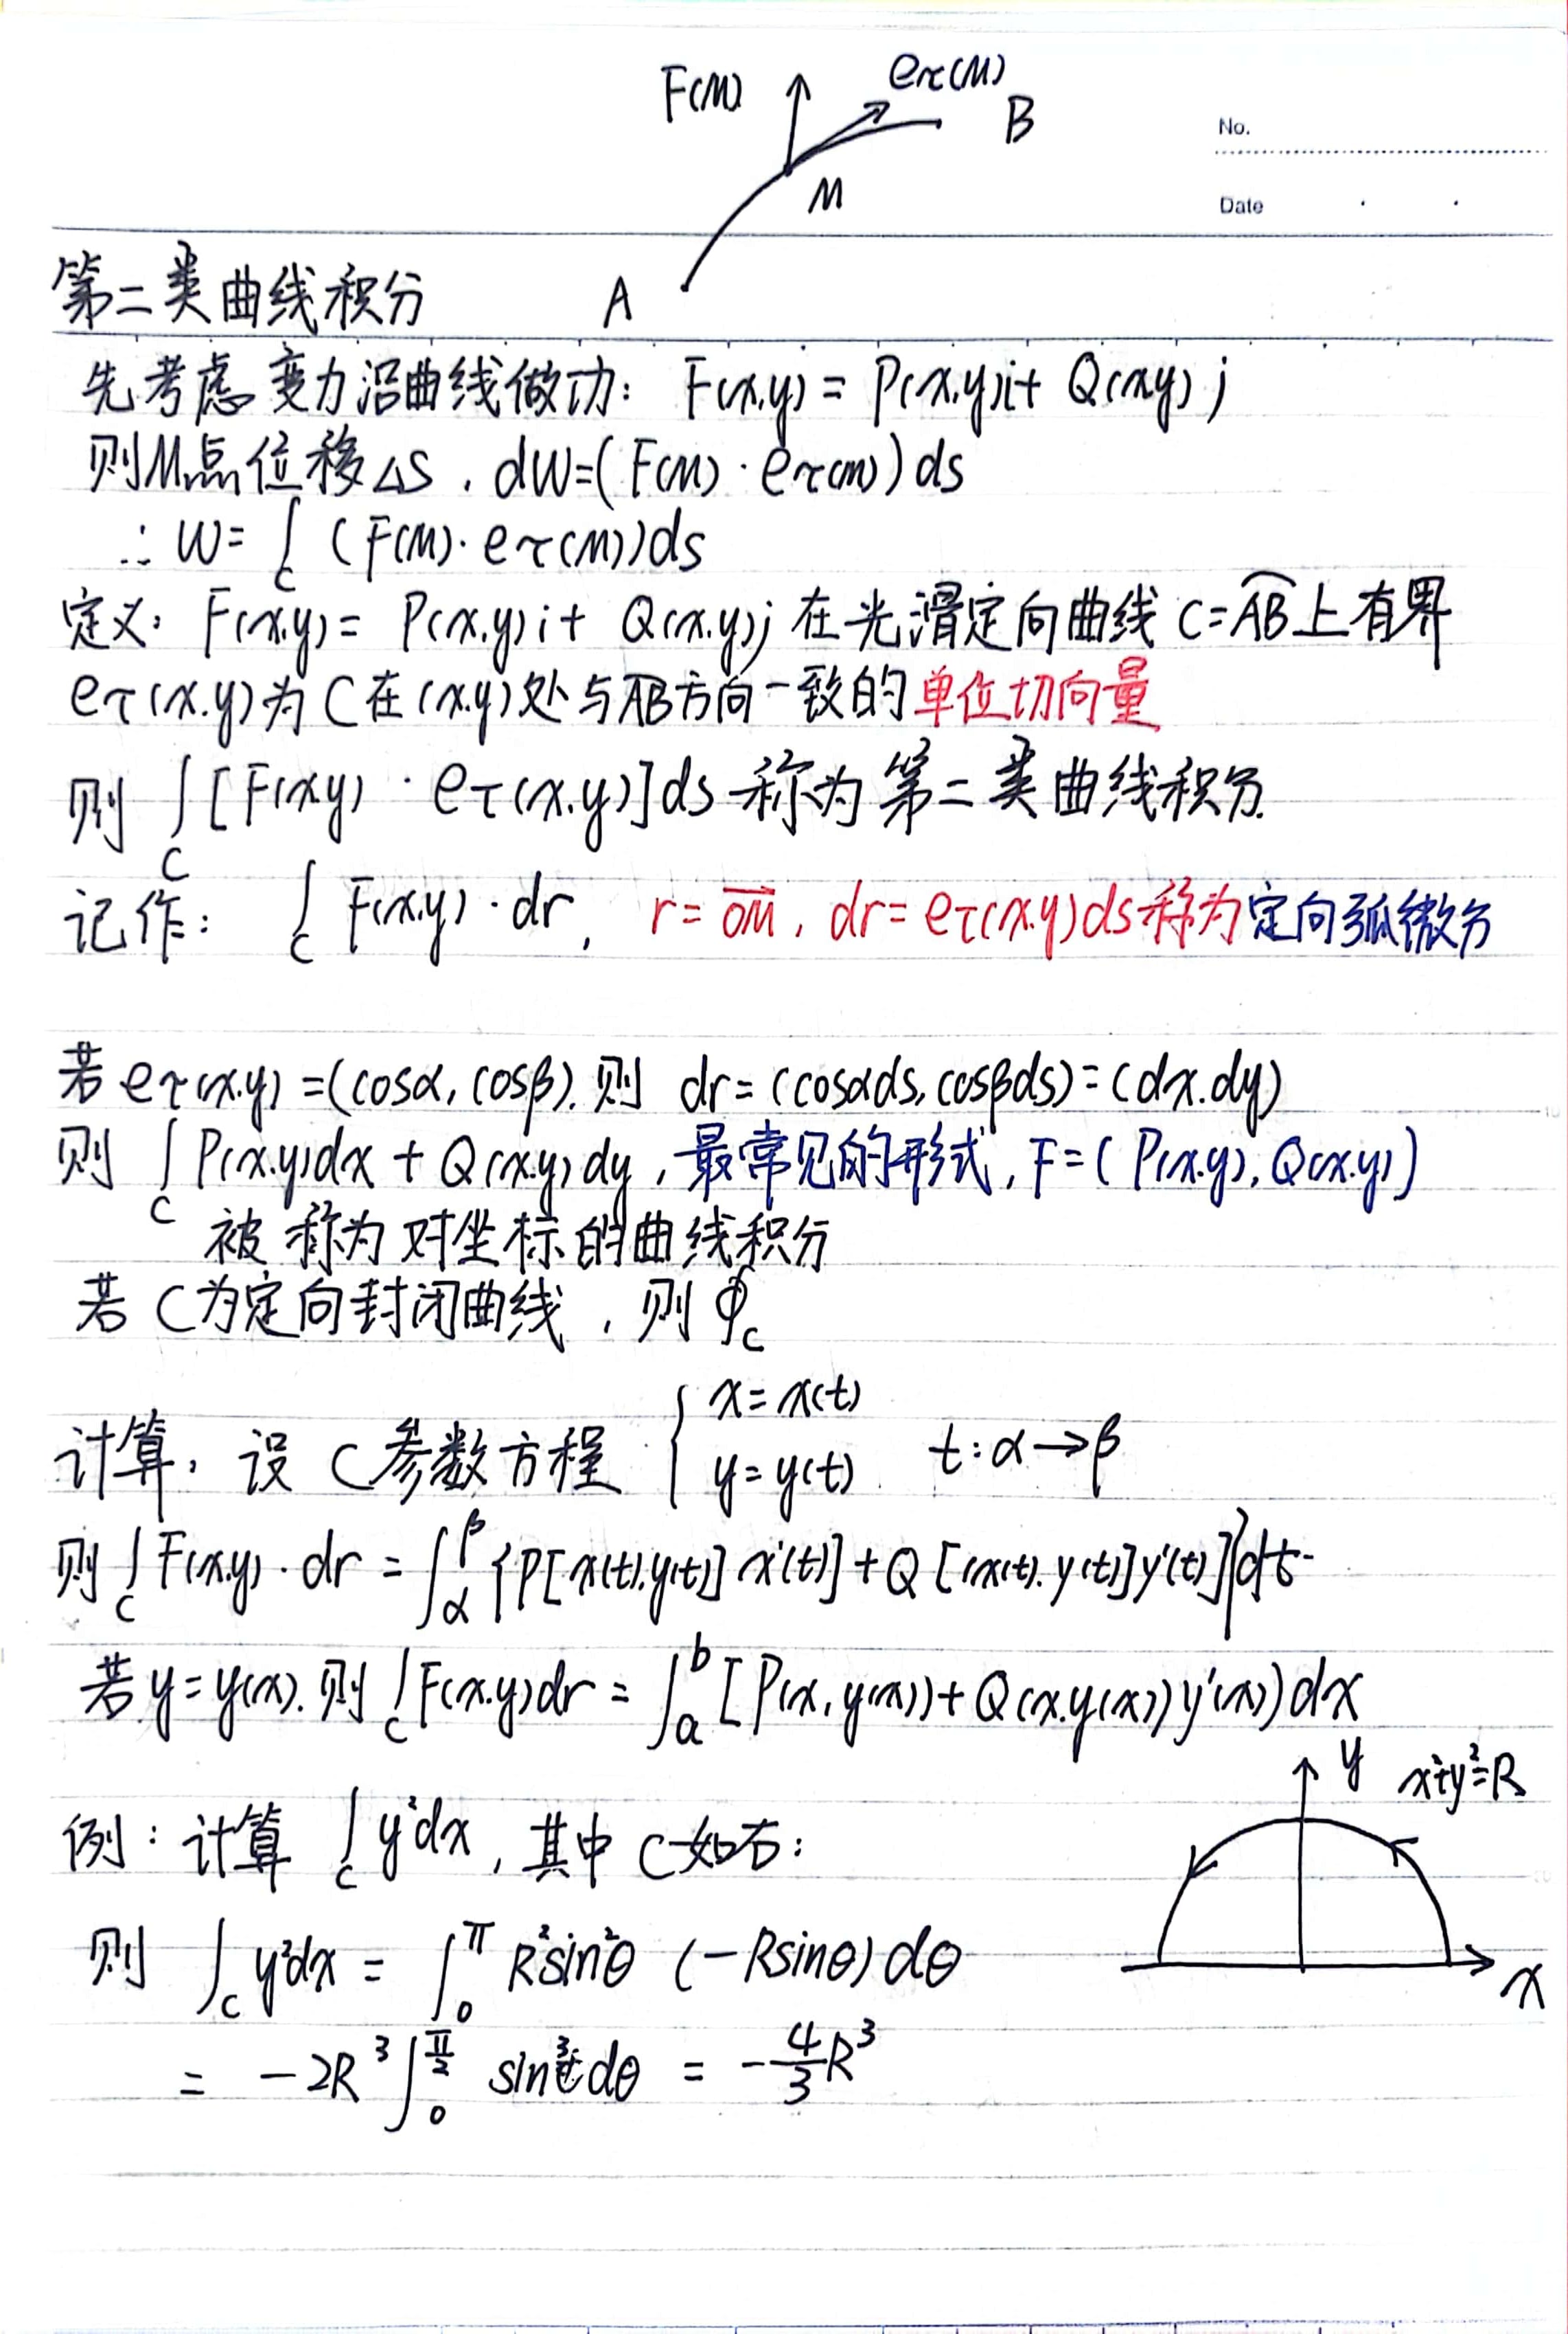 F(M) eτ(M)
B
No.
M
Date
A
第二类曲线积分
先考虑变力沿曲线做功: F(x.y) = P(x.y)i + Q(xy) j
则M点位移△S . dW=(F(M) · eτ(m)) ds
∴ W= ∫_C (F(M) · eτ(M))ds
定义: F(x.y) = P(x.y)i + Q(x.y)j 在光滑定向曲线 C=AB⌢ 上有界
eτ(x.y)为 C 在(x.y)处与AB方向一致的单位切向量
则 ∫_C [F(xy) · eτ(x.y)]ds 称为第二类曲线积分.
记作: ∫_C F(x.y) · dr, r = OM→, dr = eτ(x.y)ds 称为定向弧微分
若 eτ(x.y) = (cosα, cosβ). 则 dr = (cosαds, cosβds) = (dx.dy)
则 ∫_C P(x.y)dx + Q(x.y)dy , 最常见的形式, F = ( P(x.y), Q(x.y) )
被称为对坐标的曲线积分
若 C为定向封闭曲线 , 则 ∮_C
计算, 设 C 参数方程 { x = x(t) y = y(t) t: α→β
则 ∫_C F(x.y) · dr = ∫_α^β {P[x(t).y(t)] x'(t)] + Q[(x(t).y(t)]y'(t)]}dt
若 y = y(x). 则 ∫_C F(x.y)dr = ∫_a^b [P(x, y(x)) + Q(x.y(x)) y'(x)) dx
y x²+y²=R
例: 计算 ∫_C y²dx , 其中 C如右:
则 ∫_C y²dx = ∫_0^π R²sin²θ (-Rsinθ) dθ
x
= -2R³ ∫_0^{π/2} sin³ dθ = -4/3 R³